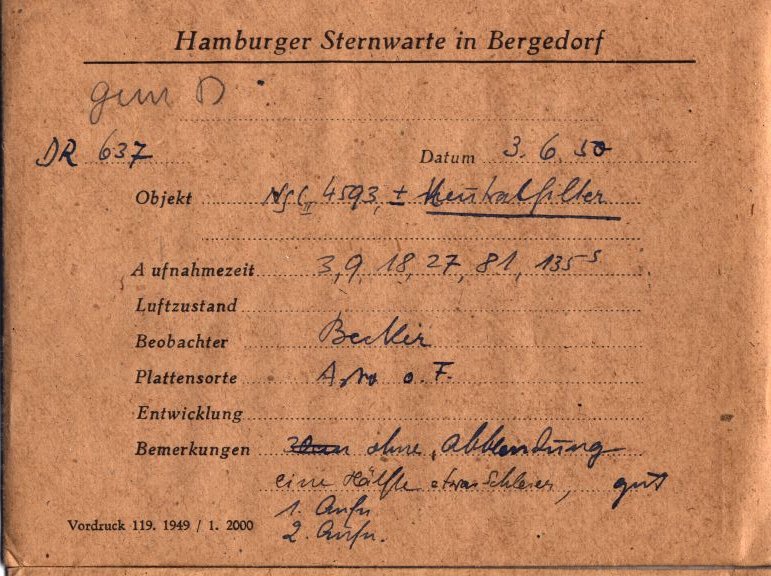 Hamburger Sternwarte in Bergedorf
DR 637
Datum 3. 6. 50
Objekt NGC II 4593, ± Neutralfilter
Aufnahmezeit 3, 9, 18, 27, 81, 135 s
Luftzustand
Beobachter Becker
Plattensorte Astro o. F.
Entwicklung
Bemerkungen ohne Abblendung
eine Hälfte etwas Schleier, gut
1. Aufn.
2. Aufn.
Vordruck 119. 1949 / 1. 2000